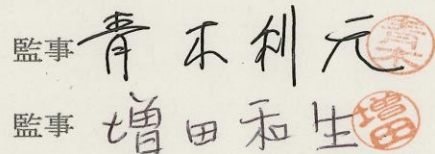 監事 青木利元 青木
監事 増田和生 増田